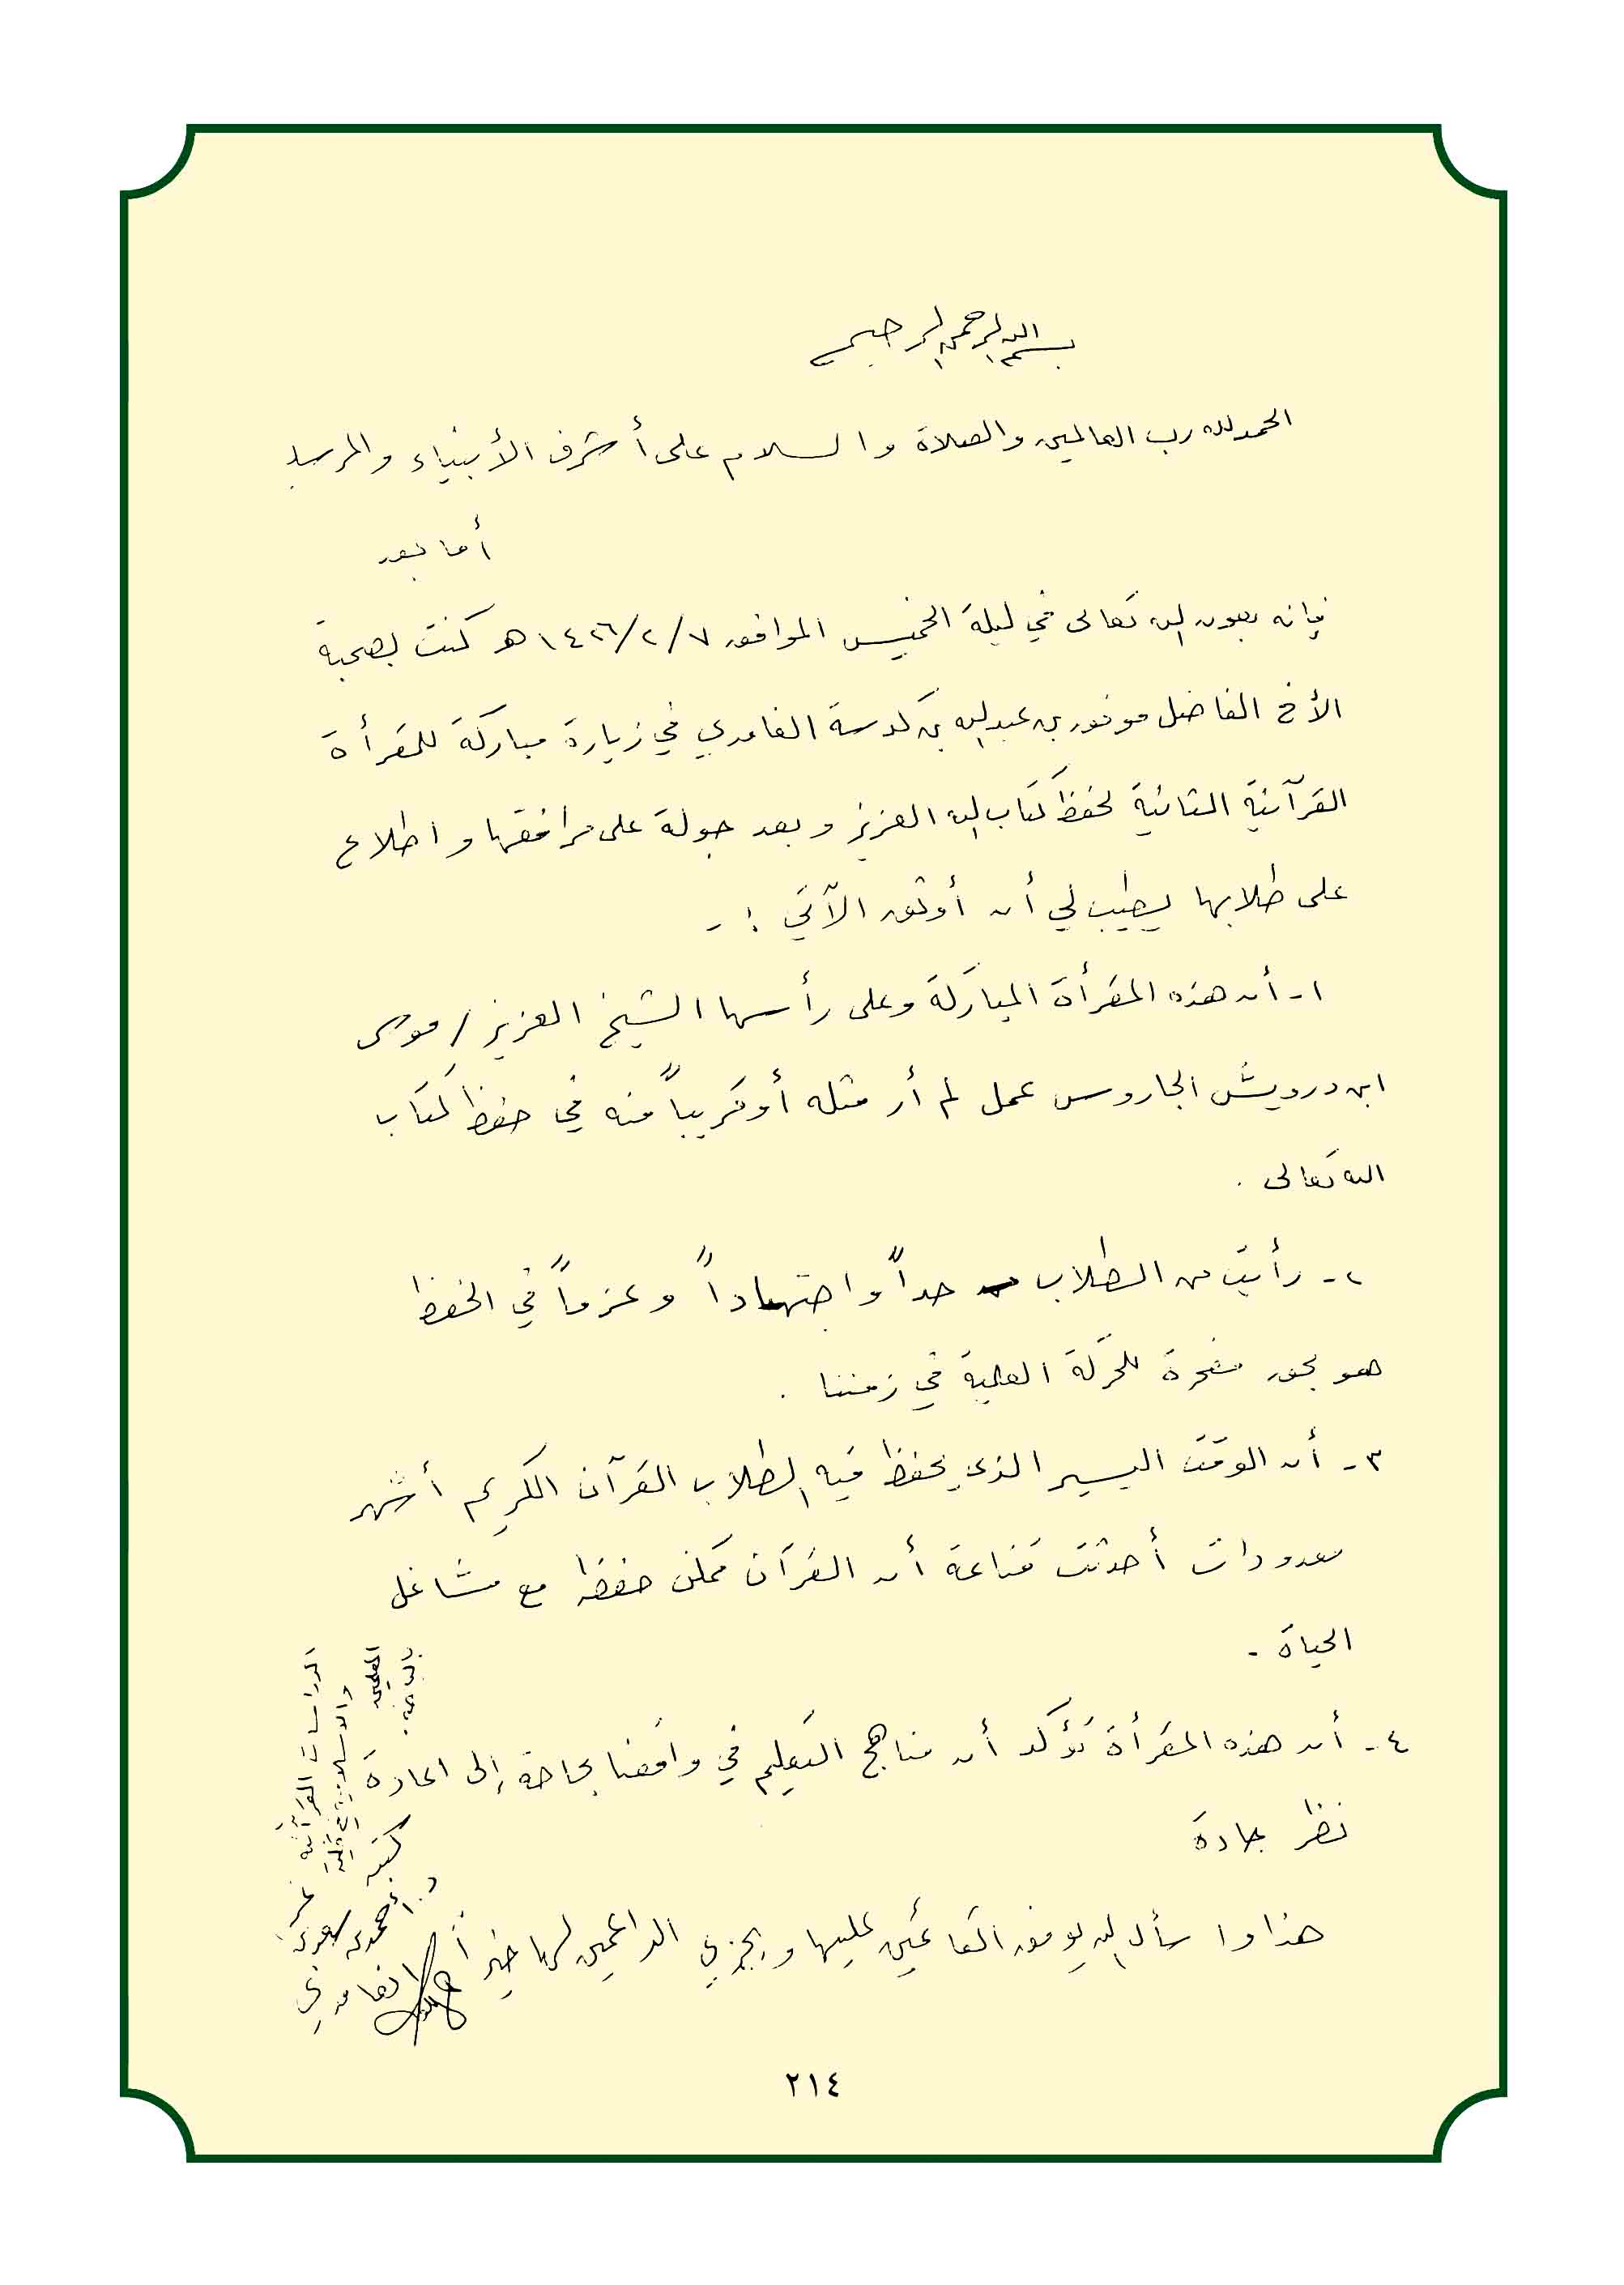 بسم الله الرحمن الرحيم
الحمد لله رب العالمين والصلاة والسلام على أشرف الأنبياء والمرسلين
أما بعد
فإنه بعون الله تعالى في ليلة الخميس الموافق ١٤٢٦/٢/٧ هـ كنت بصحبة
الأخ الفاضل موفق بن عبدالله بن كدسة الغامدي في زيارة مباركة للمقرأة
القرآنية الثانية لحفظ كتاب الله العزيز وبعد جولة على مرافقها واطلاع
على طلابها يطيب لي أن أوثق الآتي :-
١- أن هذه المقرأة المباركة وعلى رأسها الشيخ العزيز / موسى
ابن درويش الجاروس عمل لم أر مثله أو قريباً منه في حفظ كتاب
الله تعالى .
٢- رأيت من الطلاب جداً واجتهاداً وعزماً في الحفظ
هو بحق مفخرة للحركة العلمية في زمننا .
٣- أن الوقت اليسير الذي يحفظ فيه الطلاب القرآن الكريم أشهر
معدودات أحدثت قناعة أن القرآن ممكن حفظه مع مشاغل
الحياة .
٤- أن هذه المقرأة تؤكد أن مناهج التعليم في واقعنا بحاجة إلى اعادة
نظر جادة
هذا واسأل الله يوفق القائمين عليها ويجزي الداعمين لها خيراً
كتبه
د. أحمد سعد
الغامدي
الدراسات القرآنية
٢١٤